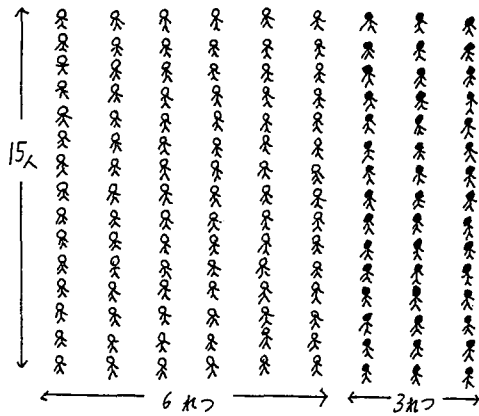 15人
6れつ
3れつ